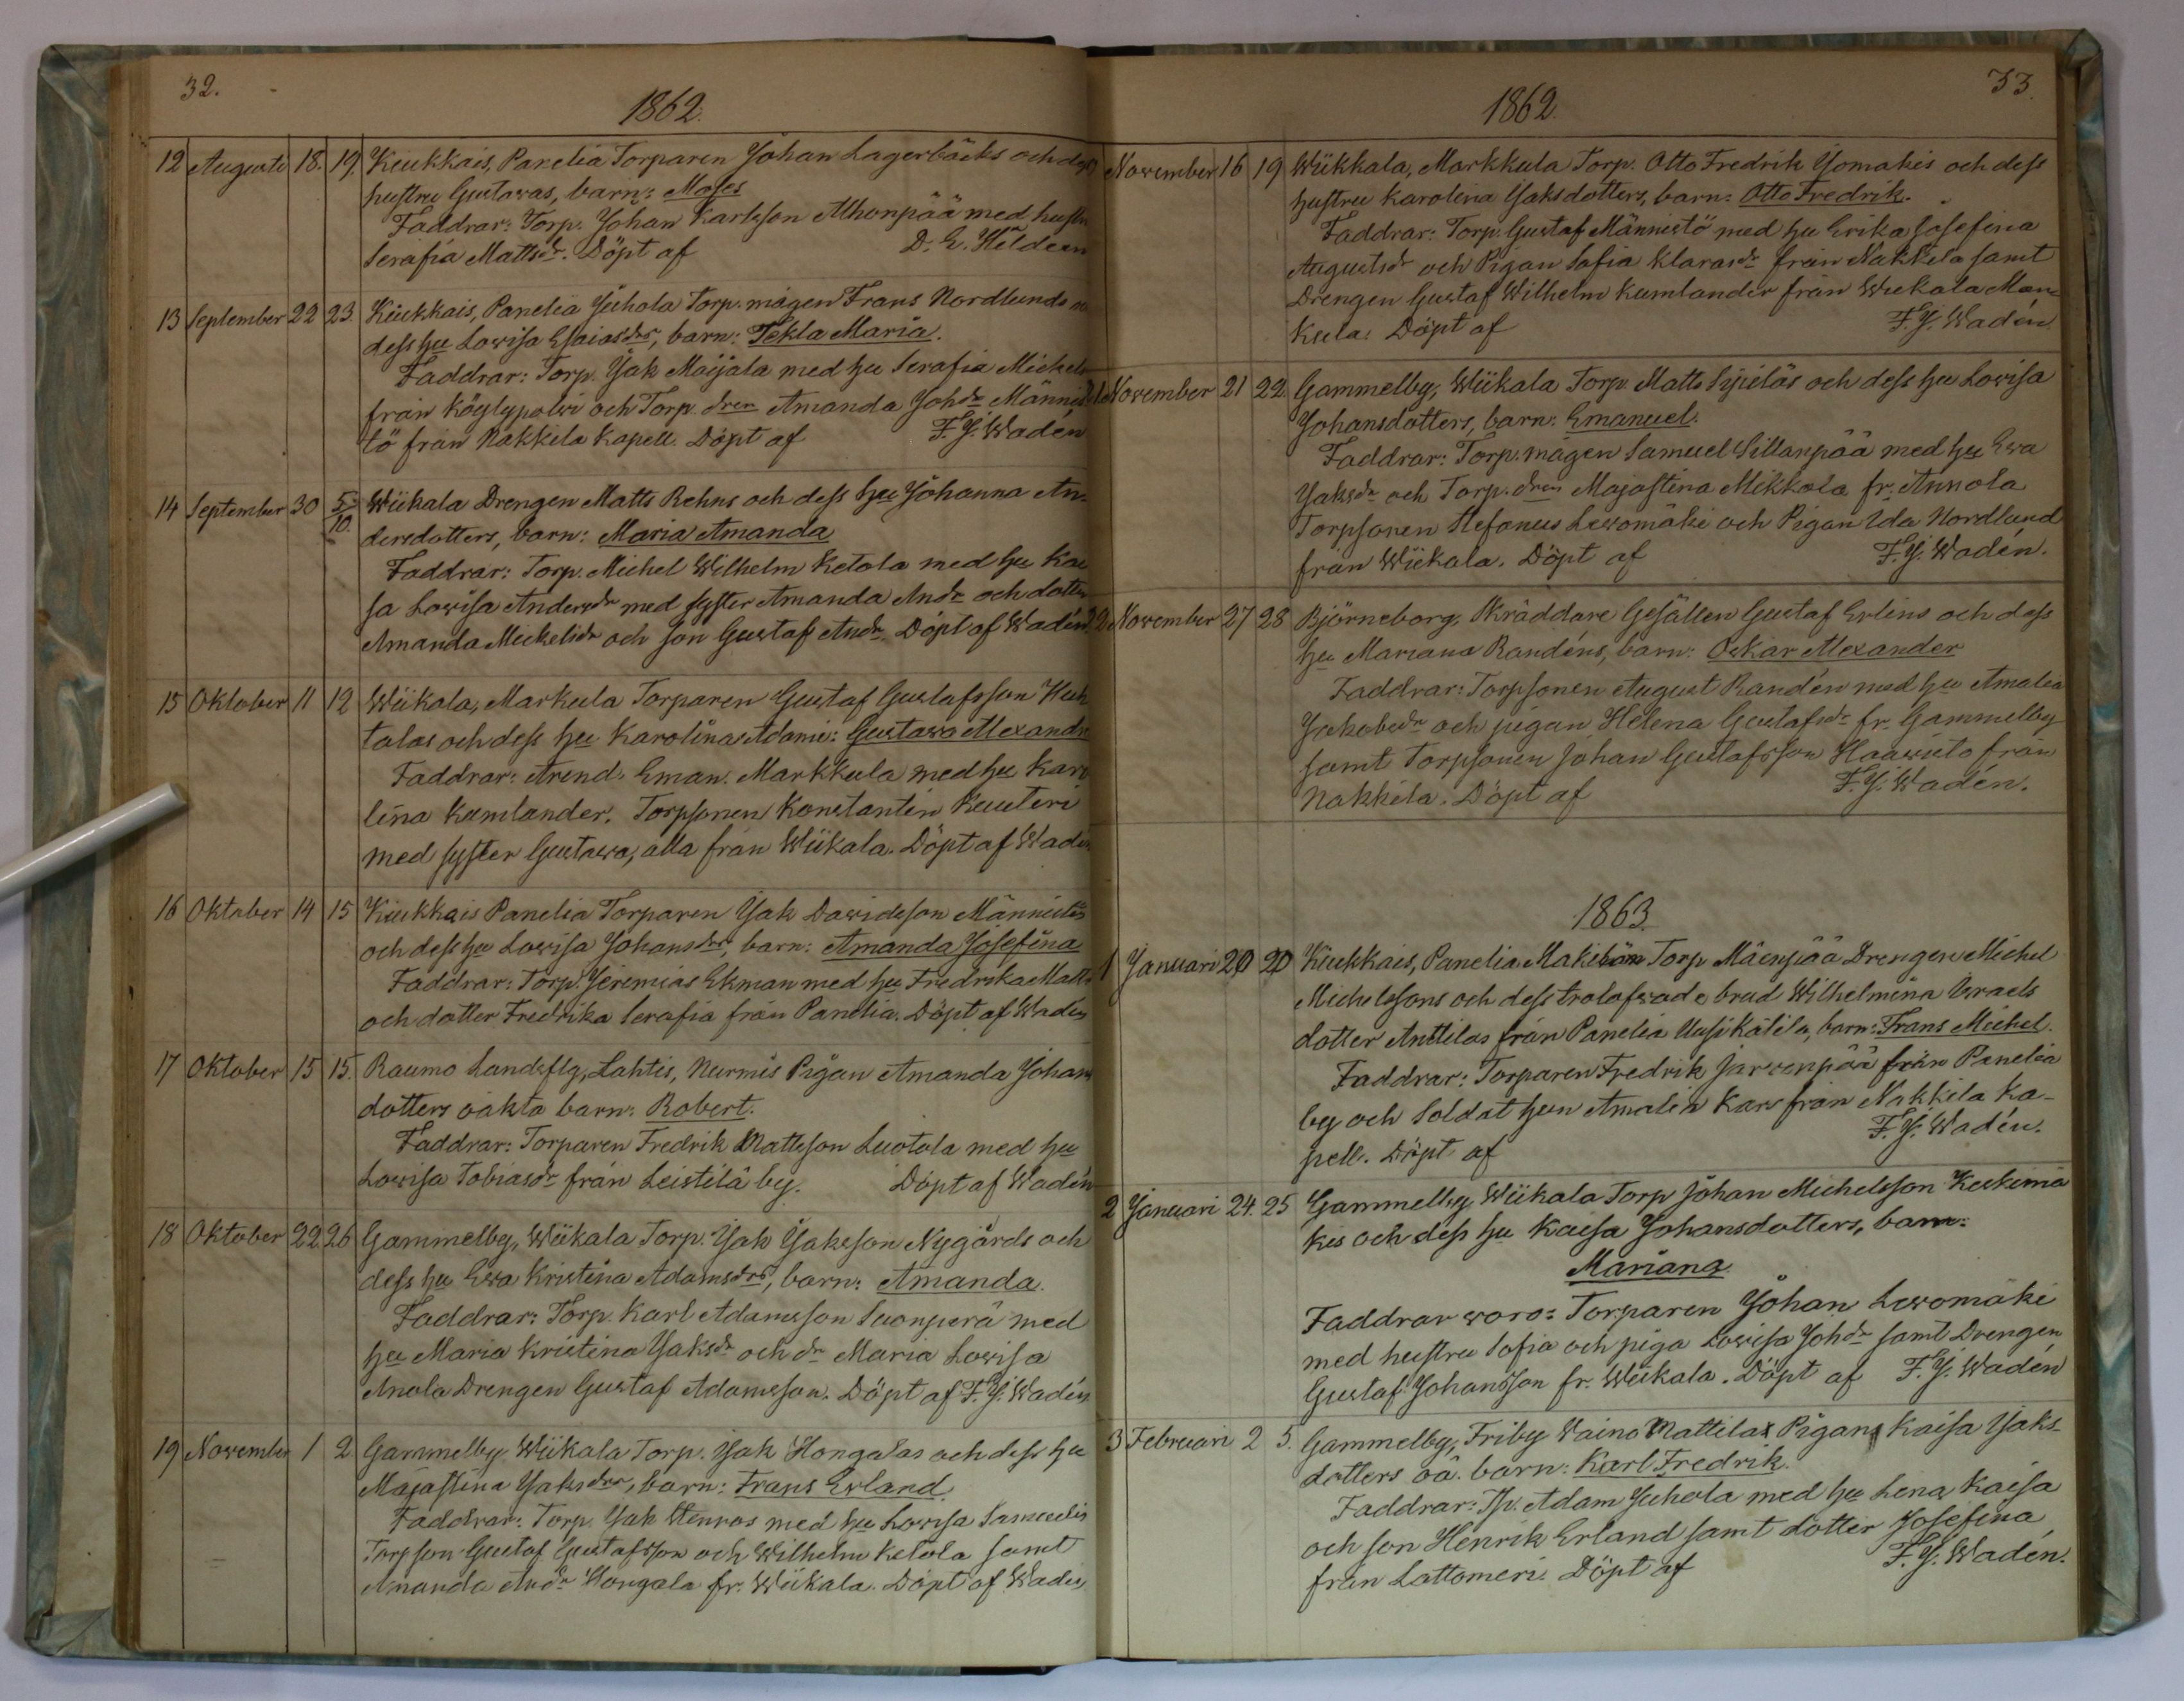 32.
1862.
12 Augusti 18. 19. Kiukkais, Panelia Torparen Johan Lagerbäcks och dess
hustru Gustawas, barn: Moses
Faddrar: Torp. Johan Karlsson Alhonpää med hustru
Serafia Mattsdr. Döpt af D. E. Hildeen
13 September 22 23 Kiukkais, Panelia Juhola Torp. mågen Frans Nordlunds
dess hu Lowisa Esaiasdrs, barn: Tekla Maria.
Faddrar: Torp. Jak Maijala med hu Serafia Michels
från Köylypolwi och Torp. dren Amanda Johdr Männis
tö från Nakkila Kapell. Döpt af F. J. Wadén
14 September 30 5/10. Wiikala Drengen Matts Rehns och dess hu Johanna An-
dersdotters, barn: Maria Amanda
Faddrar: Torp. Michel Wilhelm Ketola med hu Kai
sa Lowisa Andersdr med syster Amanda Andr och dotter
Amanda Michelsdr och son Gustaf Andr. Döpt af Wadén
15 Oktober 11 12 Wiikala, Markula Torparen Gustaf Gustafsson Huh
talas och dess hu Karolina Adami: Gustawa Alexandra
Faddrar: Arend. Eman. Markkula med hu Karo
lina Kumlander. Torpsonen Konstantin Ruuteri
med syster Gustawa, alla från Wiikala. Döpt af Wadén
16 Oktober 14 15 Kiukkais Panelia Torparen Jak Dawidsson Männistös
och dess hu Lowisa Johansdrs, barn: Amanda Josefina
Faddrar: Torp. Jeremias Ekman med hu Fredrika Matts
och dotter Fredrika Serafia från Panelia. Döpt af Wadén
17 Oktober 15 15. Raumo Landsflg, Lahtis, Nurmis Pigan Amanda Johans
dotters oäkta barn: Robert.
Faddrar: Torparen Fredrik Mattsson Luotola med hu
Lowisa Tobiasdr från Leistilä by. Döpt af Wadén
18 Oktober 22 26 Gammelby, Wiikala Torp. Jak Jaksson Nygårds och
dess hu Ewa Kristina Adamsdrs, barn: Amanda.
Faddrar: Torp. Karl Adamsson Suonperä med
hu Maria Kristina Jaksdr och dr Maria Lowisa
Anola Drengen Gustaf Adamsson. Döpt af F. J. Wadén
19 November 1 2 Gammelby Wiikala Torp. Jak Hongalas och dess hu
Majastina Jaksdrs, barn: Frans Erland.
Faddrar: Torp. Jak Stenros med hu Lowisa Samuelis
Torpson Gustaf Gustafsson och Wilhelm Ketola samt
Amanda Andr Hongala fr. Wiikala. Döpt af Wadén
33.
1862.
November 16 19 Wiikkala, Markkula Torp. Otto Fredrik Isomäkis och dess
hustru Karolina Jaksdotters, barn: Otto Fredrik.
Faddrar: Torp. Gustaf Männistö med hu Erika Josefina
Augustsdr och Pigan Sofia Klarasdr från Nakkila samt
Drengen Gustaf Wilhelm Kumlander från Wiikala Mar-
kula. Döpt af F. J. Wadén
21. November 21 22. Gammelby, Wiikala Torp. Matts Sipiläs och dess hu Lowisa
Johansdotters, barn: Emanuel.
Faddrar: Torp. mågen Samuel Sillanpää med hu Ewa
Jaksdr och Torp. dren Majastina Mikkola fr. Annola
Torpsonen Stefanus Lewomäki och Pigan Ida Nordlund
från Wiikala. Döpt af F. J. Wadén.
22 November 27 28 Björneborg, Skräddare Gesällen Gustaf Erlins och dess
hu Mariana Randéns, barn: Oskar Alexander
Faddrar: Torpsonen August Randén med hu Amalia
Jakobsdr och pigan Helena Gustafsdr fr. Gammelby
samt Torpsonen Johan Gustafsson Haawisto från
Nakkila. Döpt af F. J. Wadén.
1863.
1 Januari 20 20 Kiukkais, Panelia Torp Mäenpää Drengen Michel
Michelssons och dess trolofwade brud Wilhelmina Israels
dotter Anttilas från Panelia Uusikätilä, barn: Frans Michel.
Faddrar: Torparen Fredrik Jarwenpää från Panelia
by och Soldat hun Amalia Kars från Nakkila Ka-
pell. Döpt af F. J. Wadén.
2 Januari 24. 25 Gammelby Wiikala Torp Johan Michelsson Keskimä
kis och dess hu Kaisa Johansdotters, barn:
Mariana
Faddrar woro: Torparen Johan Lewomäki
med hustru Sofia och piga Lowisa Johdr samt Drengen
Gustaf Johansson fr. Wiikala. Döpt af F. J. Wadén
3 Februari 2 5. Gammelby, Friby Waino Mattilas Pigans Kaisa Jaks-
dotters oä. barn: Karl Fredrik.
Faddrar: Tp. Adam Juhola med hu Lena Kaisa
och son Henrik Erland samt dotter Josefina
från Lattomeri. Döpt af F. J. Wadén.